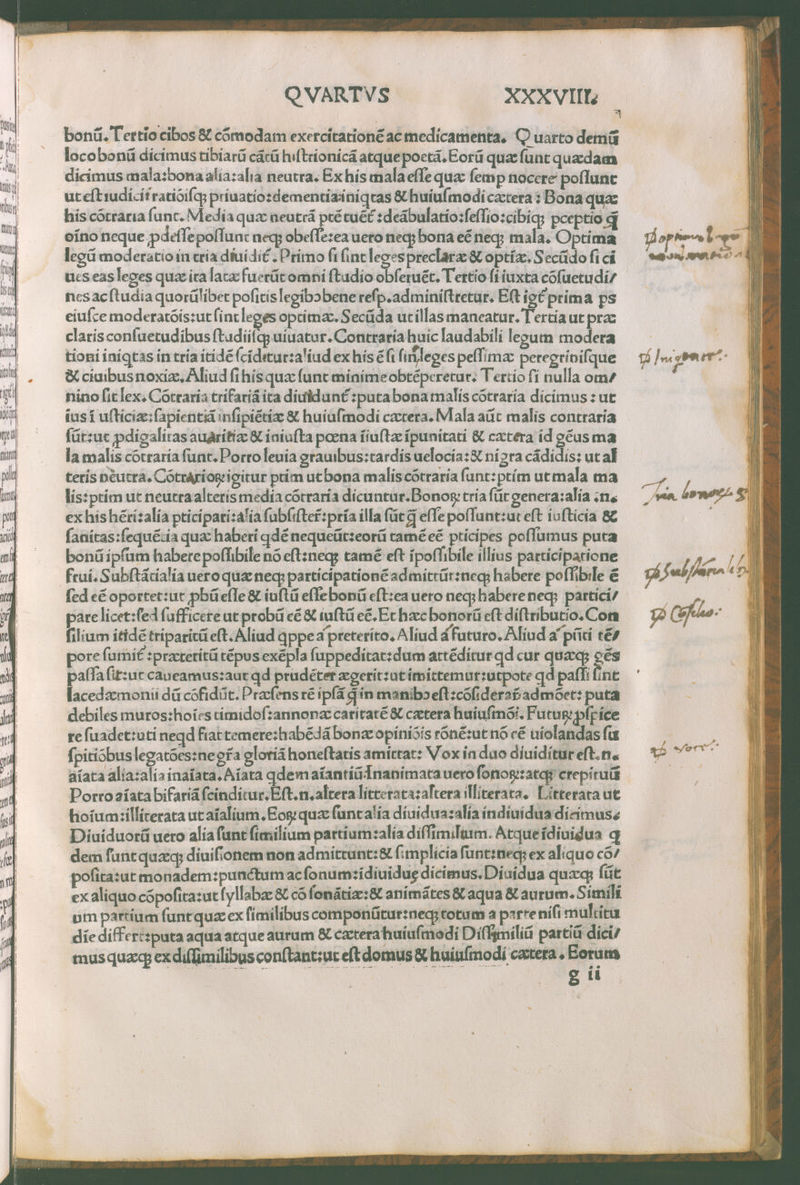 QVARTVS XXXVIII.
bonū. Tertio cibos & cōmodam exercitationē ac medicamenta. Quarto demū
loco bonū dicimus tibiarū cātū histrionicā atque poetā. Eorū quæ sunt quædam
dicimus mala: bona alia: alia neutra. Ex his mala esse quæ semp nocere possunt
ut est iudicii ratiōisq; priuatio: dementia: iniqtas & huiusmodi cætera: Bona quæ
his cōtraria sunt. Media quæ neutrā ptē tuēt̃: deābulatio: sessio: cibiq; pceptio q̃
oīno neque pdesse possunt neq; obesse: ea uero neq; bona eē neq; mala. Optima
legū moderatio in tria diuidit̃. Primo si sint leges preclaræ & optīæ. Secūdo si ci
ues eas leges quæ ita latæ fuerūt omni studio obseruēt. Tertio si iuxta cōsuetudi/
nes ac studia quorūlibet positis legibȝ bene resp. administretur. Est igt̃ prima ps
eiusce moderatōis: ut sint leges optimæ. Secūda ut illas maneatur. Tertia ut præ
claris consuetudibus studiisq; uiuatur. Contraria huic laudabili legum modera
tioni iniqtas in tria itidē scīditur: aliud ex his ē si sint leges pessimæ peregrinisque
& ciuibus noxiæ. Aliud si his quæ sunt minime obtēperetur. Tertio si nulla om/
nino sit lex. Cōtraria trifariā ita diuidunt̃: puta bona malis cōtraria dicimus: ut
iusti usticiæ: sapientiā insipiētiæ & huiusmodi cætera. Mala aūt malis contraria
sūt: ut pdigalitas auaritiæ & iniusta pœna iiustæ ipunitati & cætera id gēus ma
la malis cōtraria sunt. Porro leuia grauibus: tardis uelocia: & nigra cādidis: ut al
teris neutra. Cōtrarioꝝ igitur ptim ut bona malis cōtraria sunt: ptim ut mala ma
lis: ptim ut neutra alteris media cōtraria dicuntur. Bonoꝝ tria sūt genera: alia .n.
ex his hēri: alia pticipari: alia subsistet̃: pria illa sūt q̃ esse possunt: ut est iusticia &
sanitas: sequētia quæ haberi qdē nequeūt: eorū tamē eē pticipes possumus puta
bonū ipsum habere possibile nō est: neq; tamē est ipossibile illius participatione
frui. Substātialia uero quæ neq; participationē admittūt: neq; habere possibile ē
sed eē oportet: ut pbū esse & iustū esse bonū est: ea uero neq; habere neq; partici/
pare licet: sed sufficere ut probū eē & iustū eē. Et hæc bonorū est distributio. Con
silium itidē tripartitū est. Aliud qppe a preterito. Aliud a futuro. Aliud a pn̄ti tē/
pore sumit̃: præteritū tēpus exēpla suppeditat: dum attēditur qd cur quæq; gēs
passa sit: ut caueamus: aut qd prudēter ægerit: ut imittemur: utpote qd passi sint
lacedæmonii dū cōfidūt. Præsens rē ipsā q̃ in manibȝ est: cōsiderat̃ admōet: puta
debiles muros: hoies timidos: annonæ caritatē & cætera huiusmōi. Futuꝝ pspice
re suadet: uti neqd fiat temere: habēdā bonæ opiniōis rōnē: ut nō eē uiolandas su
spitiōbus legatōes: ne gr̃a gloriā honestatis amittat: Vox in duo diuiditur est .n.
aiata alia: alia inaiata. Aiata qdem aiantiū: Inanimata uero sonoꝝ: atq; crepituū
Porro aiata bifariā scinditur. Est .n. altera litterata: altera illiterata. Litterata ut
hoium: illiterata ut aīalium. Eoꝝ quæ sunt alia diuidua: alia indiuidua dicimus.
Diuiduorū uero alia sunt similium partium: alia dissimilium. Atque idiuidua q
dem sunt quæq; diuisionem non admittunt: & simplicia sunt: neq; ex aliquo cō/
posita: ut monadem: punctum ac sonum: idiuidug dicimus. Diuidua quæq; sūt
ex aliquo cōposita: ut syllabæ & cō sonātiæ: & animātes & aqua & aurum. Simili
um partium sunt quæ ex similibus componūtur: neq; totum a parte nisi multitu
die differt: puta aqua atque aurum & cætera huiusmodi Dissimiliū partiū dici/
mus quæq; ex dissimilibus constant: ut est domus & huiusmodi cætera. Eorum
g ii